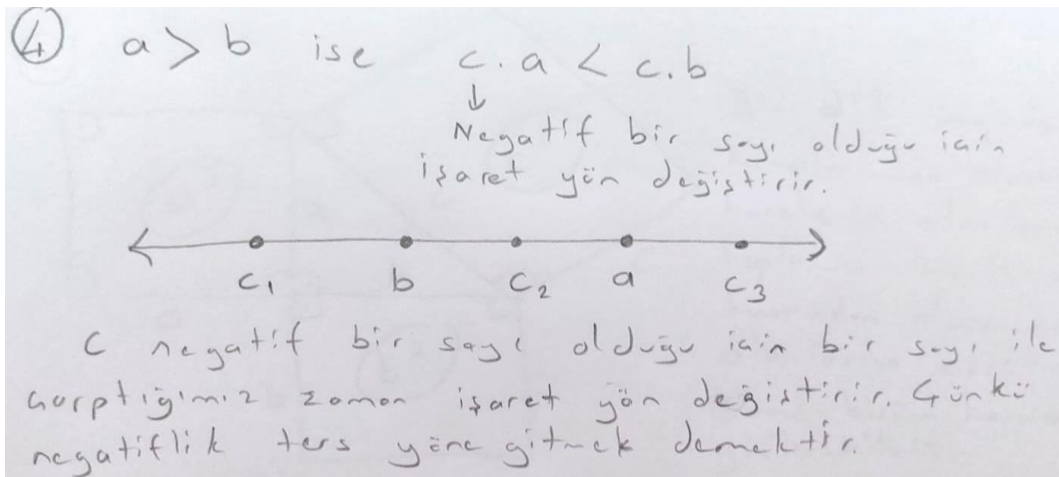 4 a > b ise c.a < c.b
↓
Negatif bir sayı olduğu için
işaret yön değiştirir.
c₁ b c₂ a c₃
C negatif bir sayı olduğu için bir sayı ile
çarptığımız zaman işaret yön değiştirir. Çünkü
negatiflik ters yöne gitmek demektir.